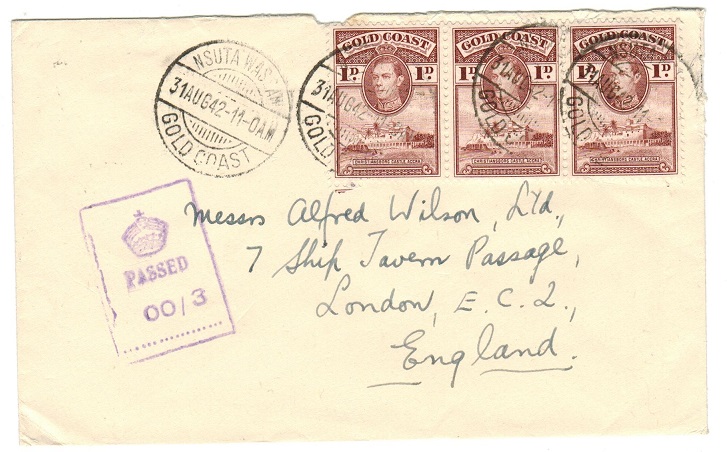 NSUTA WASAW
31AUG42-11-0AM
GOLD COAST
GOLD COAST
1D. 1D.
CHRISTIANSBORG CASTLE, ACCRA
GOLD COAST
1D. 1D.
CHRISTIANSBORG CASTLE, ACCRA
GOLD COAST
1D. 1D.
CHRISTIANSBORG CASTLE, ACCRA
31AUG42-11
GOLD
31AUG42-11
GOLD
NSUTA
31AUG42-11
GOLD
PASSED
OO/3
Messrs Alfred Wilson, Ltd.,
7 Ship Tavern Passage,
London, E.C.2.,
England.